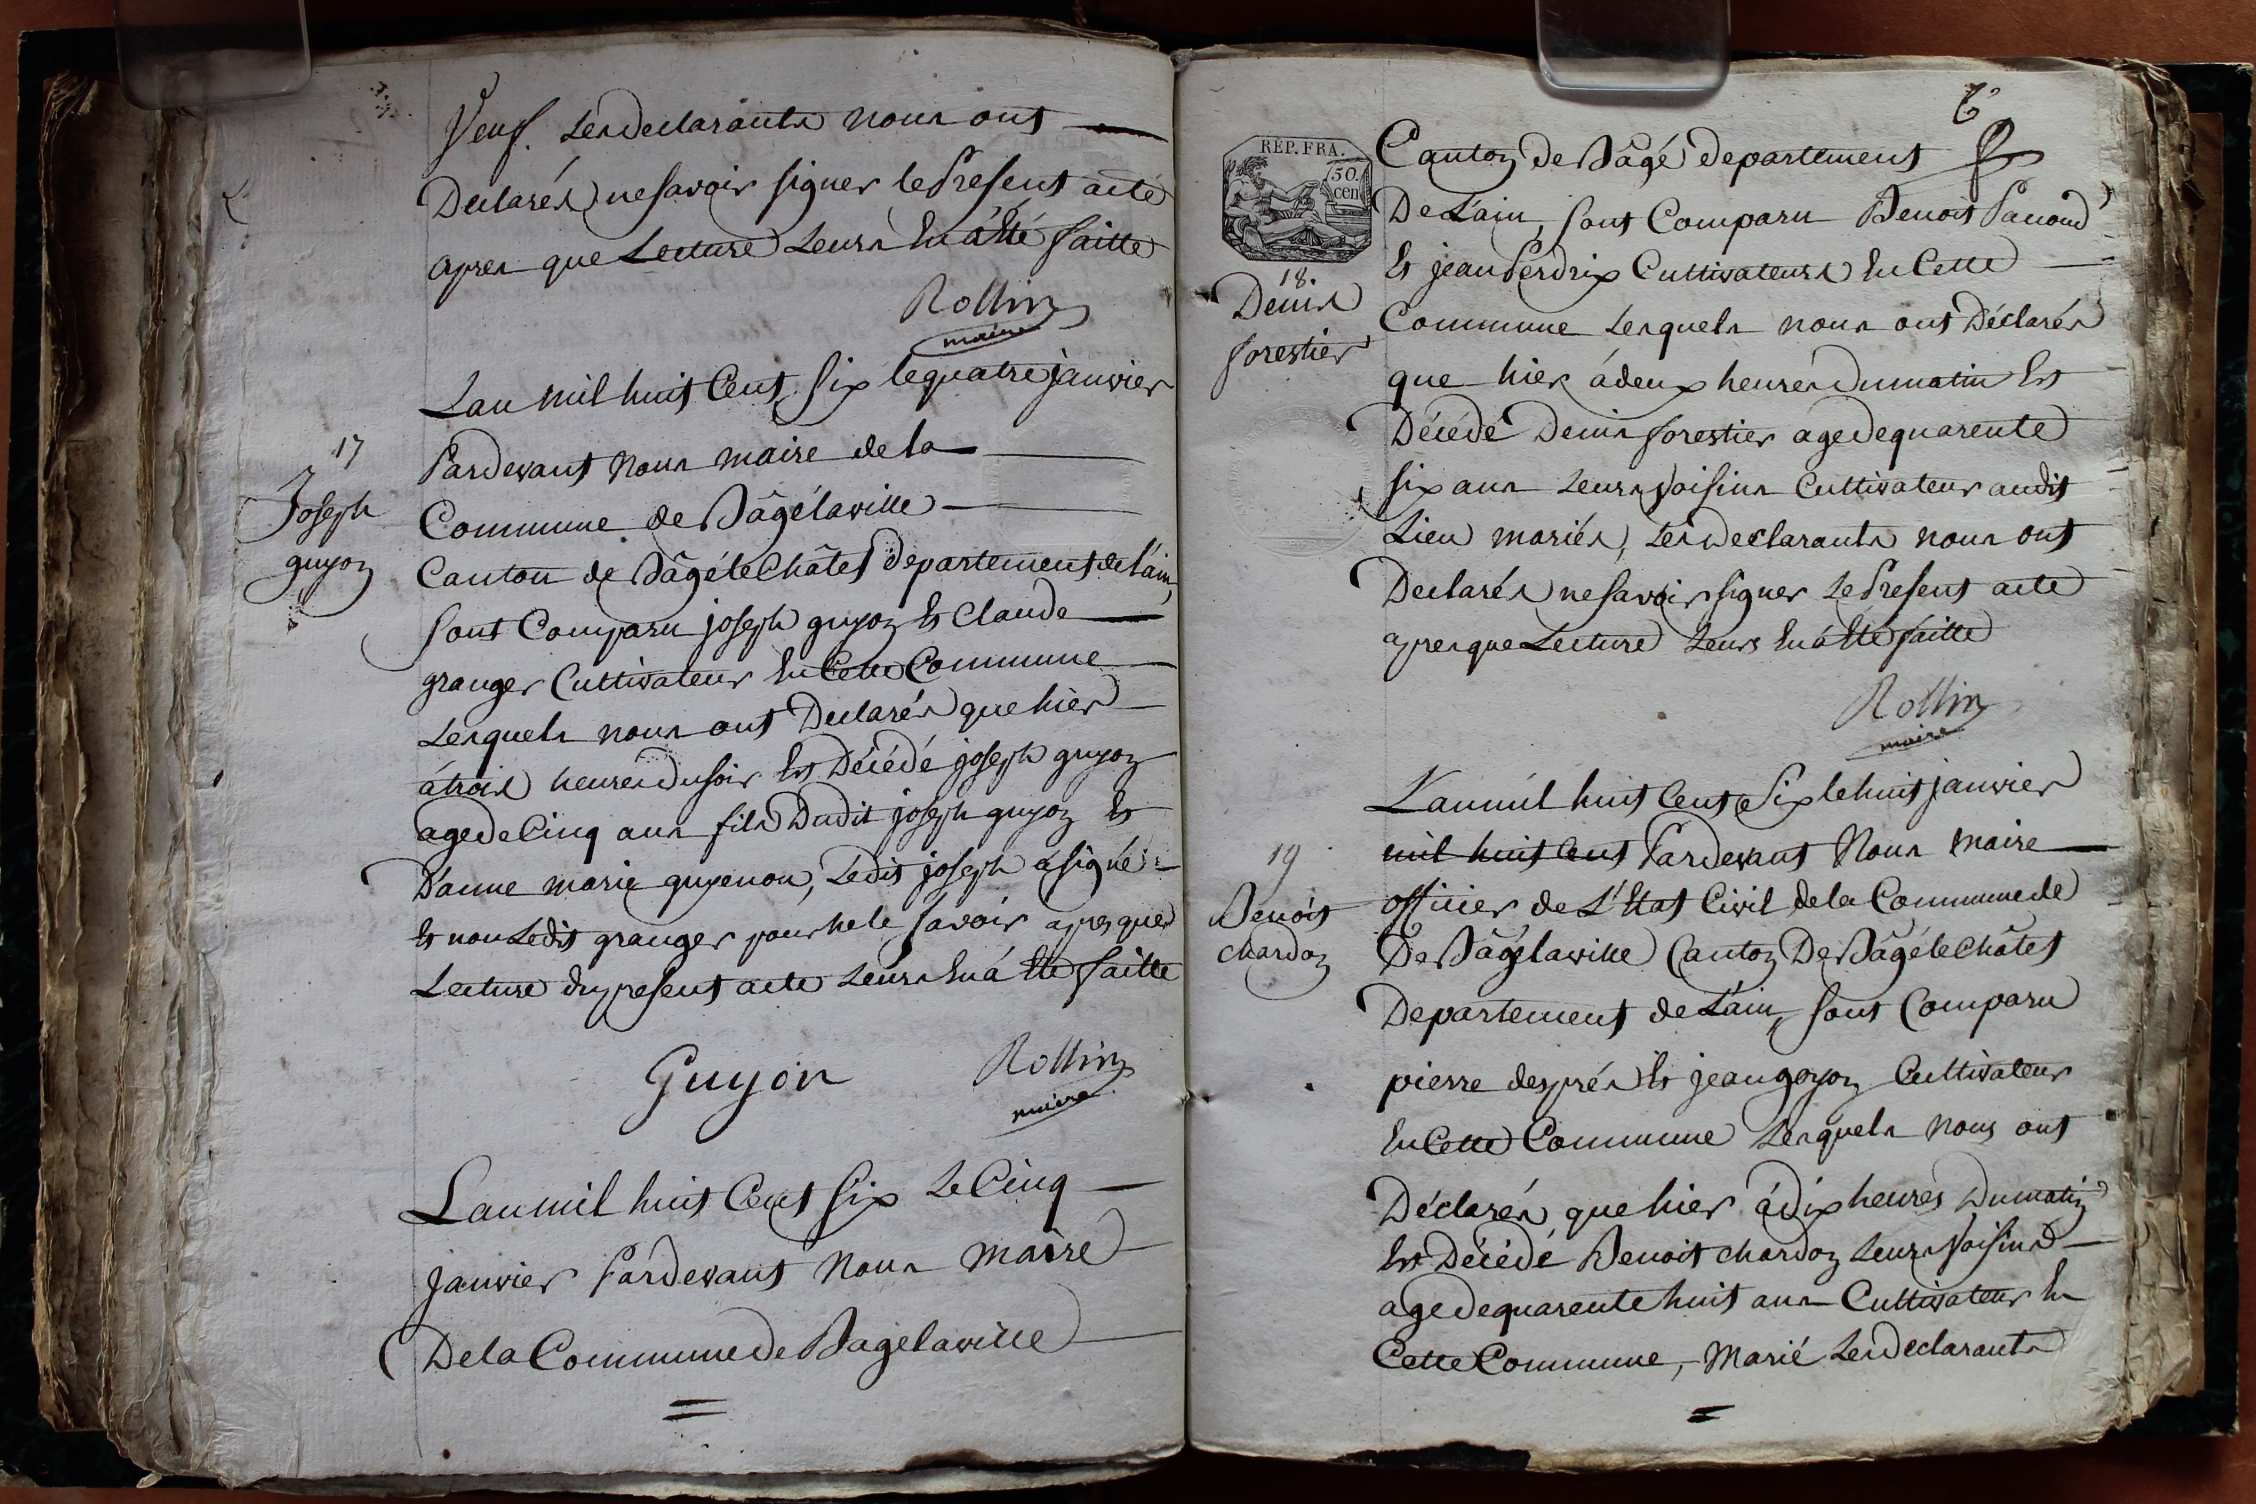 Veuf. Les declarants nous ont
Declarés ne savoir signer le Present acte
apres que Lecture Leurs En á Eté faitte
Rollin
maire
17
Joseph
guyon
Lan mil huit Cent Six le quatre janvier
Pardevant Nous maire de la
Commune de Bâgé la ville
Canton de Bâgé le Châtel Departement de l'ain,
sont Comparu joseph guyon Et Claude
granger Cultivateur En Cette Commune
Lesquels nous ont Declarés que hier
á trois heures du soir Est Décédé joseph guyon
age de Cinq ans fils Dudit joseph guyon Et
D'anne marie guyenon, Ledit joseph a signé
Et non Ledit granger pour ne le savoir apres que
Lecture du present acte Leurs En á Eté faitte
Guyon
Rollin
maire
Lan mil huit Cent Six Le Cinq
janvier Pardevant Nous maire
De la Commune de Bagé la ville
6
REP. FRA.
50.
cen
18.
Denis
forestier
Canton de Bâgé departement
De L'ain, sont Comparu Benoit Pacoud
Et jean Perdrix Cultivateurs En Cette
Commune Lesquels nous ont Déclarés
que hier á deux heures du matin Est
Décédé Denis forestier age de quarente
six ans Leurs Voisins Cultivateur audit
Lieu mariés, Les declarants nous ont
Declarés ne savoir signer Le Present acte
apres que Lecture Leurs En á Eté faitte
Rollin
maire
19
Benoit
chardon
L'an mil huit Cent Six le huit janvier
mil huit Cent Pardevant Nous maire
officier de L'Etat Civil de la Commune de
De Bâgé la ville Canton De Bâgé le Châtel
Departement de L'ain, sont Comparu
pierre després Et jean goyon Cultivateur
En Cette Commune Lesquels Nous ont
Déclarés que hier á dix heures Du matin
Est Décédé Benoit chardon Leurs Voisins
age de quarente huit ans Cultivateur En
Cette Commune, Marié Les declarants